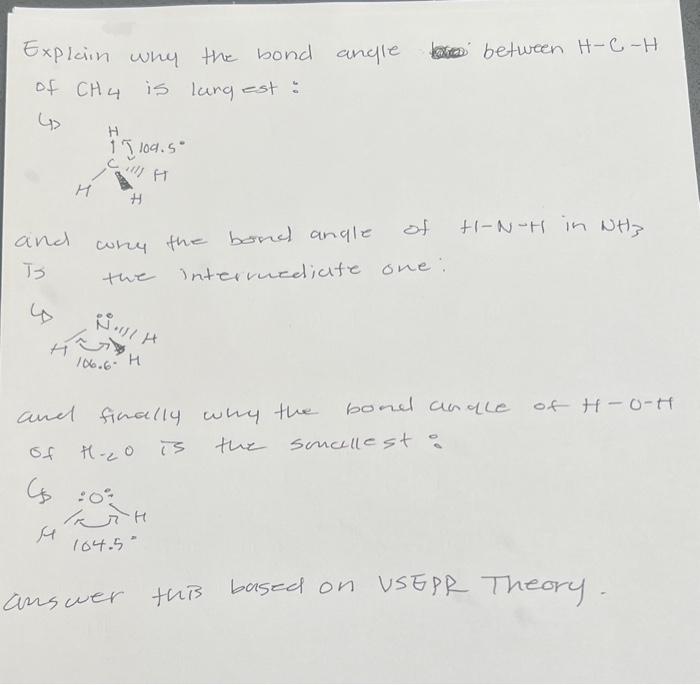 Explain why the bond angle between H-C-H
of CH4 is largest :
H
109.5°
C
H
H
H
and why the bond angle of H-N-H in NH3
is the intermediate one:
N
H
H
106.6° H
and finally why the bond angle of H-O-H
of H2O is the smallest :
:O:
H
H
104.5°
answer this based on VSEPR Theory.